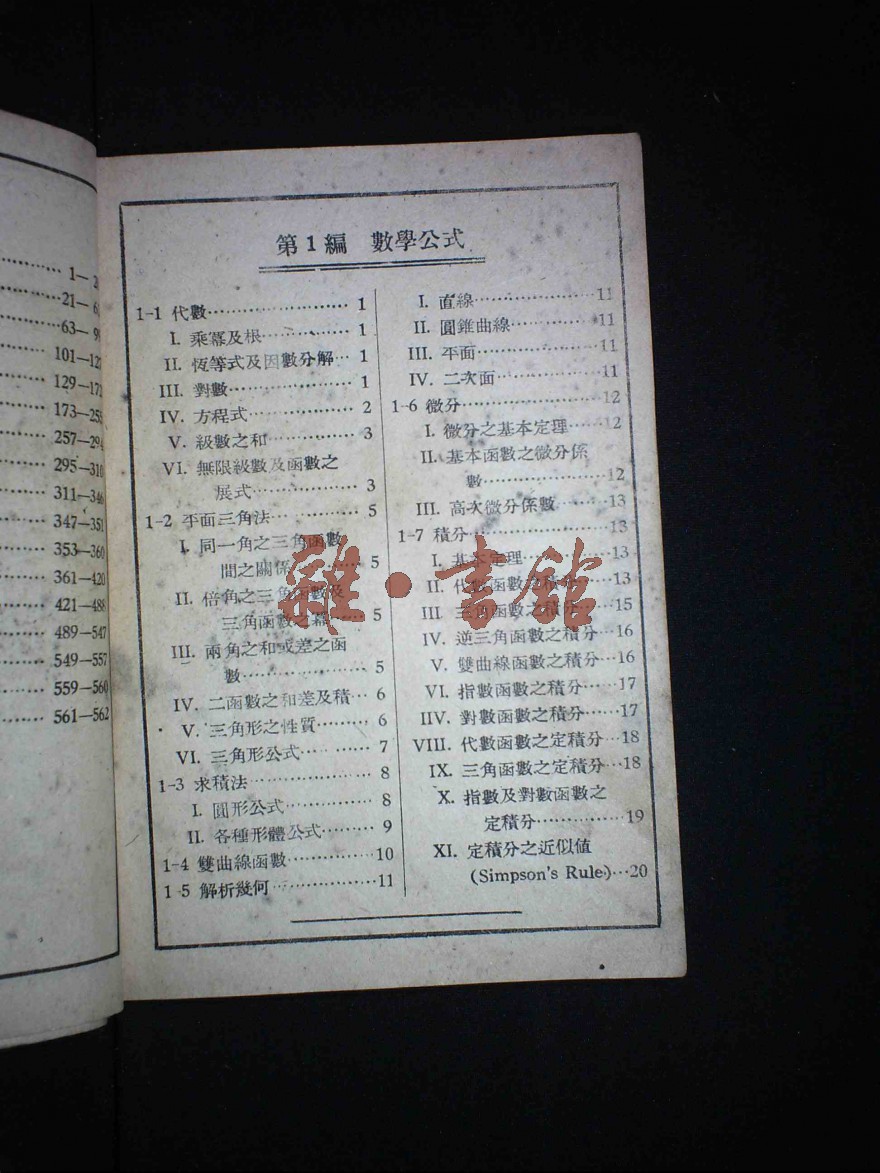 1—2
21—6
63—9
101—12
129—17
173—25
257—294
295—310
311—346
347—351
353—360
361—420
421—488
489—547
549—557
559—560
561—562
第1編 數學公式
1-1 代數 1
I. 乘冪及根 1
II. 恆等式及因數分解 1
III. 對數 1
IV. 方程式 2
V. 級數之和 3
VI. 無限級數及函數之
展式 3
1-2 平面三角法 5
I. 同一角之三角函數
間之關係 5
II. 倍角之三角函數及
三角函數之冪 5
III. 兩角之和或差之函
數 5
IV. 二函數之和差及積 6
V. 三角形之性質 6
VI. 三角形公式 7
1-3 求積法 8
I. 圓形公式 8
II. 各種形體公式 9
1-4 雙曲線函數 10
1-5 解析幾何 11
I. 直線 11
II. 圓錐曲線 11
III. 平面 11
IV. 二次面 11
1-6 微分 12
I. 微分之基本定理 12
II. 基本函數之微分係
數 12
III. 高次微分係數 13
1-7 積分 13
I. 基本定理 13
II. 代數函數之積分 13
III 三角函數之積分 15
IV. 逆三角函數之積分 16
V. 雙曲線函數之積分 16
VI. 指數函數之積分 17
IIV. 對數函數之積分 17
VIII. 代數函數之定積分 18
IX. 三角函數之定積分 18
X. 指數及對數函數之
定積分 19
XI. 定積分之近似値
(Simpson's Rule.) 20
雜·書館